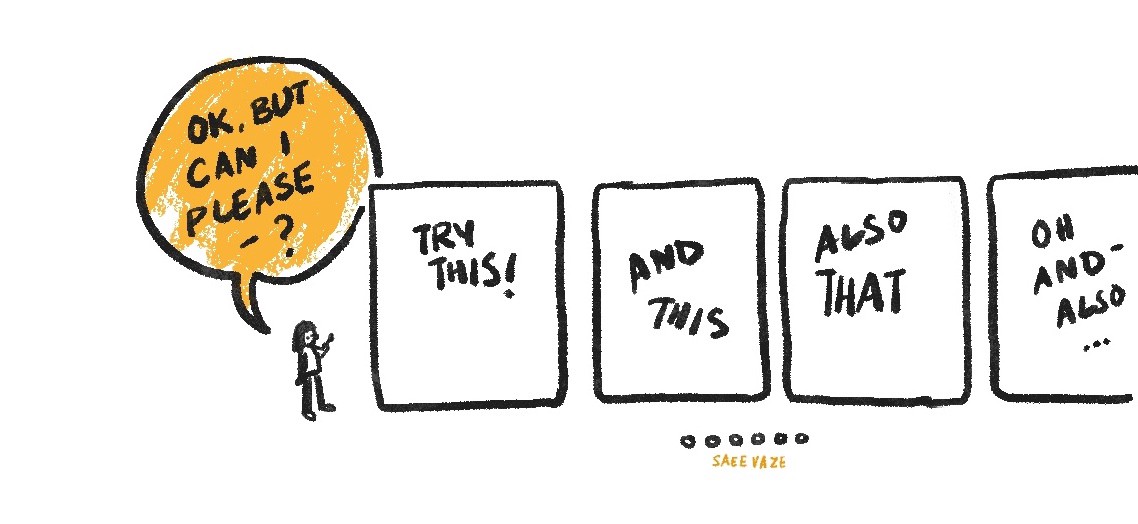 OK, BUT
CAN I
PLEASE
- ?
TRY
THIS!
AND
THIS
ALSO
THAT
OH
AND-
ALSO
...
SAEE VAZE